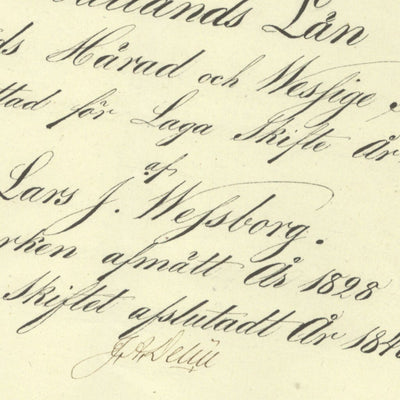 Hallands Län
ds Härad och Wessige
ttad för Laga Skifte År
af
Lars J. Wessborg.
rken afmätt År 1828
Skiftet afslutadt År 184